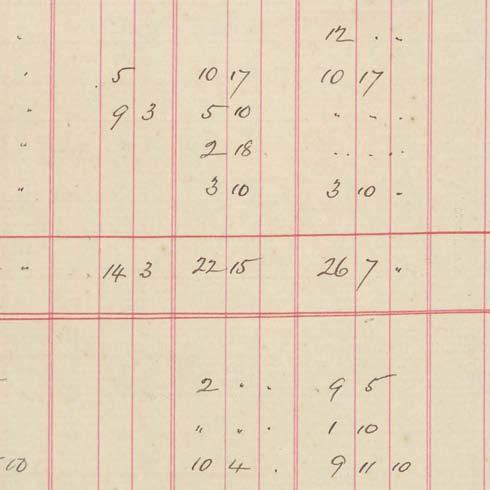 " 12 . "
" 5 10 17 10 17
" 9 3 5 10 " " .
" 2 18 . . . .
" 3 10 3 10 .
" 14 3 22 15 26 7 "
2 . . 9 5
" " . 1 10
10 10 4 . 9 11 10